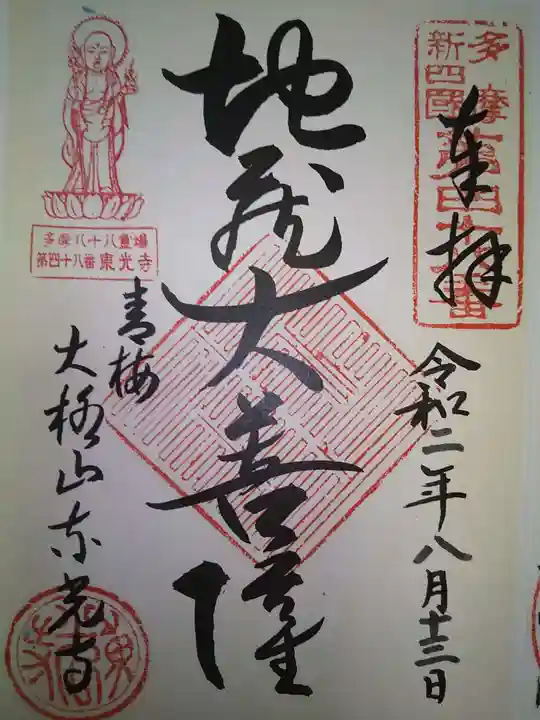 多摩
新四國
第四十八番
奉拝
令和二年八月十三日
地蔵大菩薩
多摩八十八霊場
第四十八番東光寺
青梅
大柳山東光寺